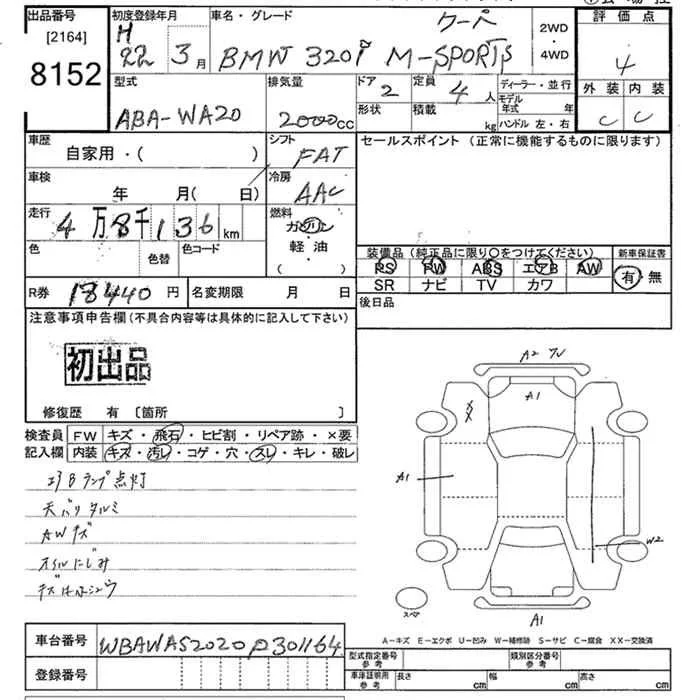 出品番号
[2164]
8152
初度登録年月
H
22 3月
車名・グレード
クーペ
BMW 320i M-SPORTS
2WD
・
4WD
評価点
4
外装 内装
C C
型式
ABA-WA20
排気量
2000cc
ドア
2
定員
4人
形状
積載
kg
ディーラー・並行
モデル
年式 年
ハンドル 左・右
車歴
自家用・( )
シフト
FAT
セールスポイント (正常に機能するものに限ります)
車検
年 月( 日)
冷房
AAC
走行
4万8千136km
燃料
ガソリン
軽・油
・
( )
色
色替
色コード
装備品(純正品に限り○をつけてください)
PS PW ABS エアB AW
SR ナビ TV カワ
新車保証書
有・無
R券 18440円
名変期限 月 日
後日品
注意事項申告欄(不具合内容等は具体的に記入して下さい)
初出品
修復歴 有〔箇所 〕
検査員
記入欄
FW キズ・飛石・ヒビ割・リペア跡・×要
内装 キズ・汚レ・コゲ・穴・スレ・キレ・破レ
エアBランプ点灯
天バリタルミ
AWキズ
オイルにじみ
A2
A1
A1
W2
スペア
A1
A-キズ E-エクボ U-凹み W-補修跡 S-サビ C-腐食 XX-交換済
車台番号 WBAWA52020P301164
登録番号
型式指定番号
参考
類別区分番号
参考
車庫証明用
参考
長さ cm
幅 cm
高さ cm